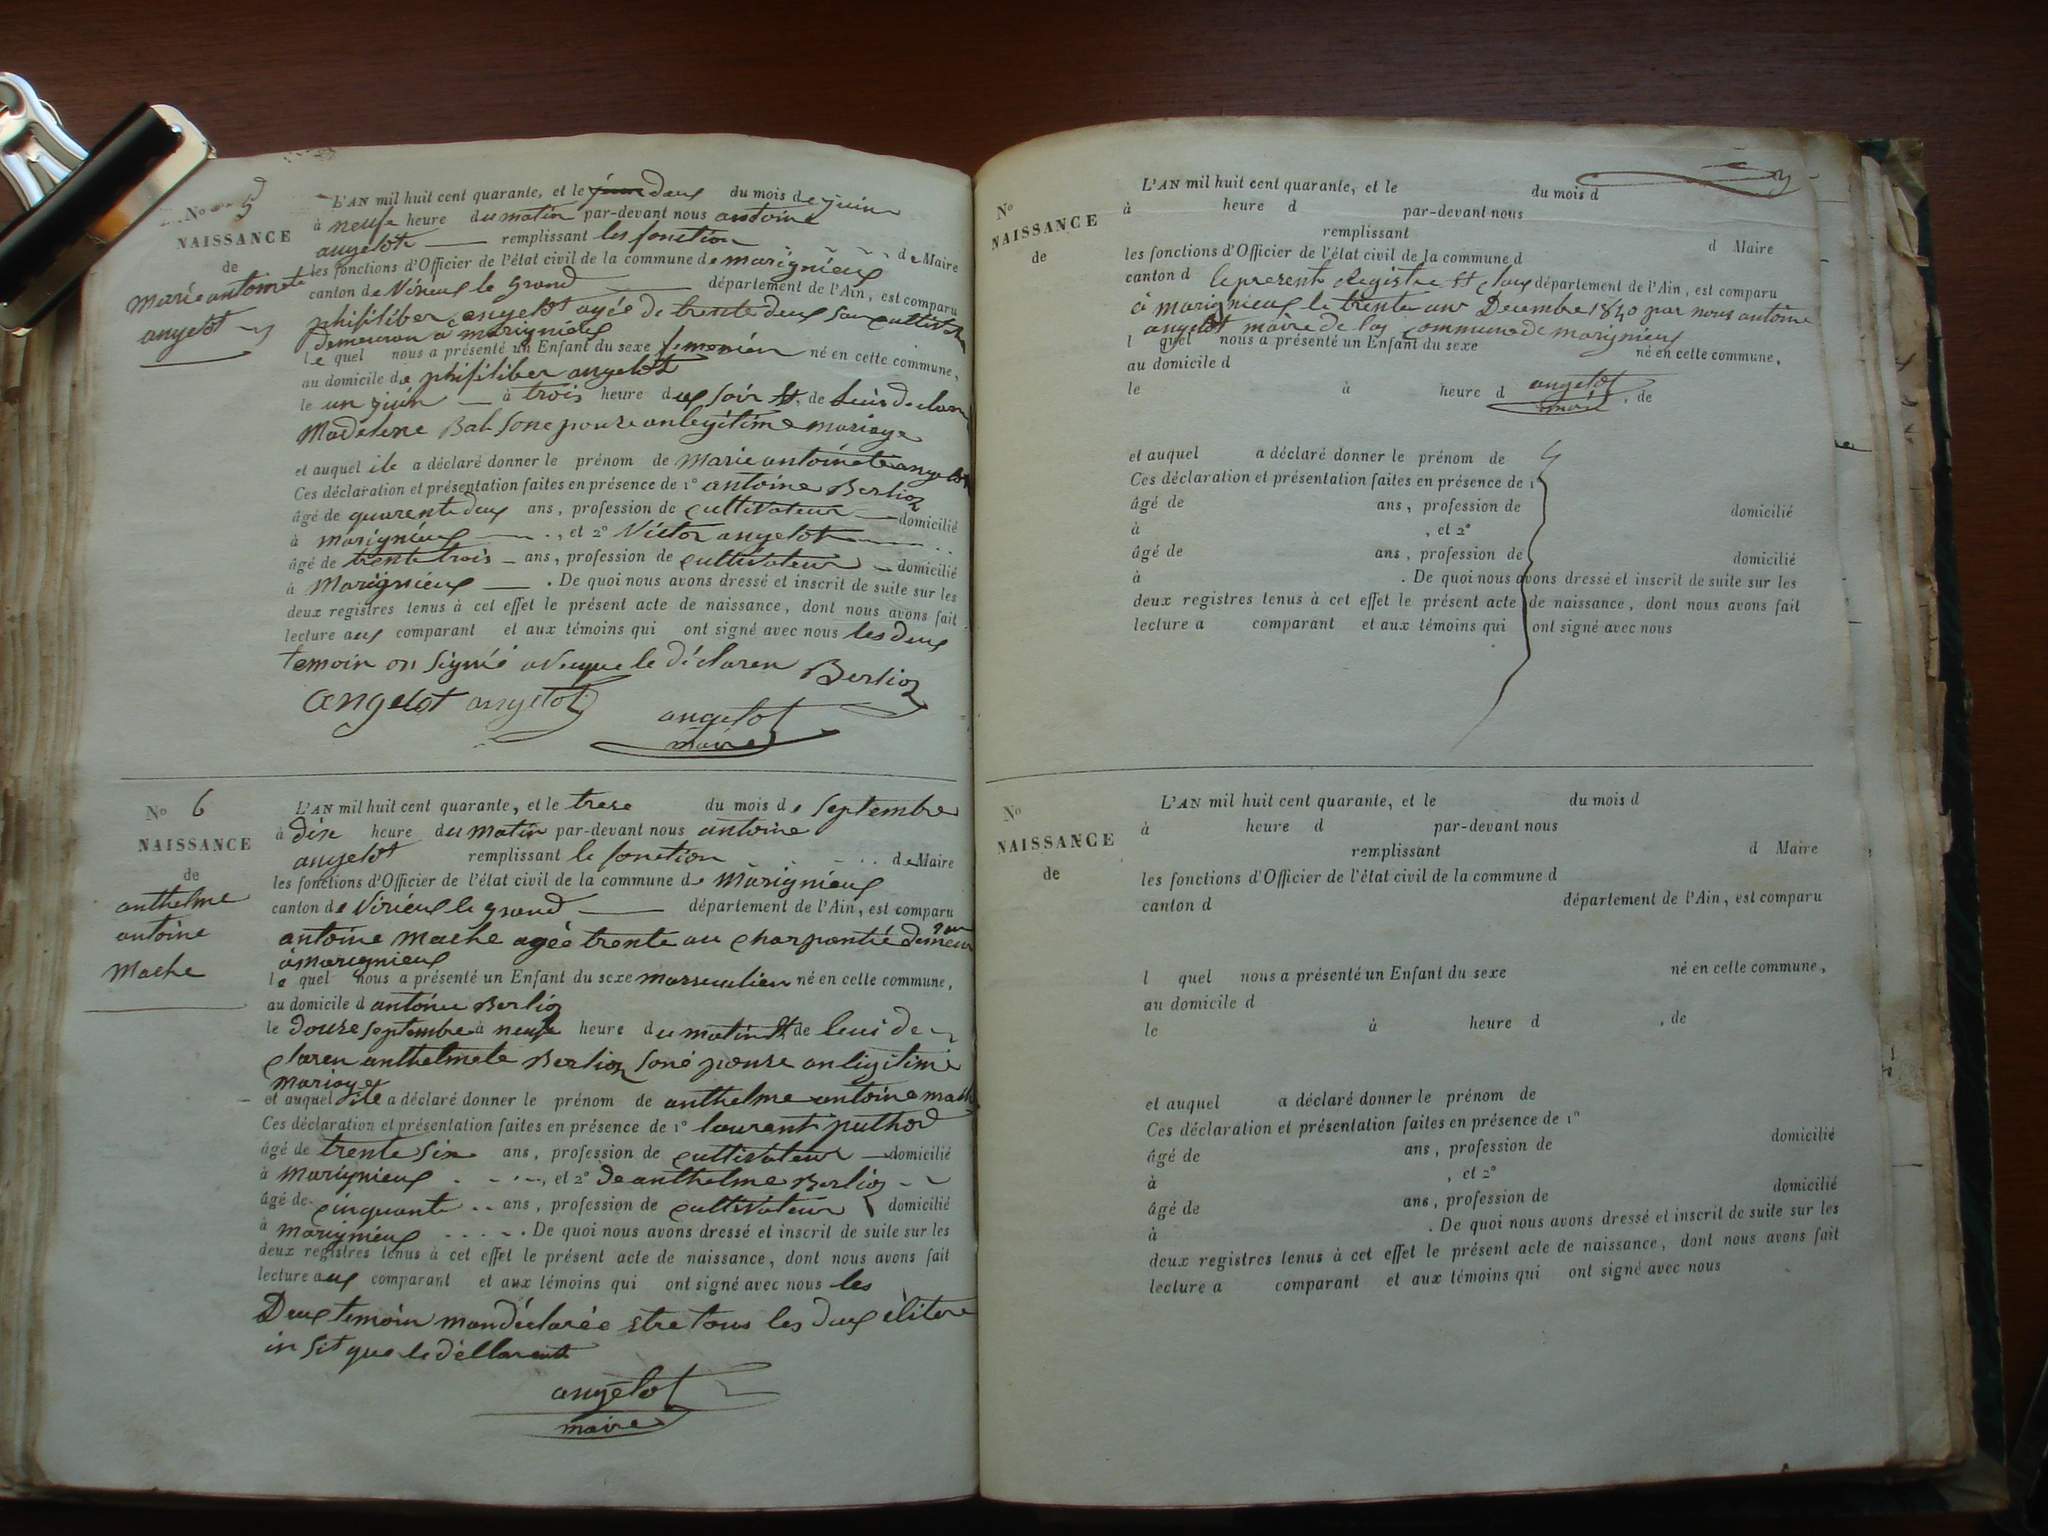 No 5
NAISSANCE
de
marie antoinete
angelot
L'AN mil huit cent quarante, et le deux du mois de juin
à neufe heure du matin par-devant nous antoine
angelot remplissant les fonction de Maire
les fonctions d'Officier de l'état civil de la commune de marignieux
canton de Virieux le grand département de l'Ain, est comparu
phililiber angelot agée de trente deux
demeuran a marignieux
le quel nous a présenté un Enfant du sexe femenien né en cette commune,
au domicile de phililiber angelot
le un juin à trois heure du soir et de luis declaren
Madelene Bal son epouse an legitime mariage
et auquel ile a déclaré donner le prénom de Marie antoinete angelot
Ces déclaration et présentation faites en présence de 1° antoine Berlioz
âgé de quarente deux ans, profession de cultivateur domicilié
à marignieux, et 2° Victor angelot
âgé de trente trois ans, profession de cultivateur domicilié
à Marignieux. De quoi nous avons dressé et inscrit de suite sur les
deux registres tenus à cet effet le présent acte de naissance, dont nous avons fait
lecture aux comparant et aux témoins qui ont signé avec nous les deux
temoin on signié avecque le déclaren Berlioz
angelot angelot
angelot
maire
No 6
NAISSANCE
de
anthelme
antoine
Mache
L'AN mil huit cent quarante, et le trese du mois de septembre
à dix heure du matin par-devant nous antoine
angelot remplissant le fonction de Maire
les fonctions d'Officier de l'état civil de la commune de Marignieux
canton de Virieux le grand département de l'Ain, est comparu
antoine Mache agée trente an charpentié demeuran
a marignieux
le quel nous a présenté un Enfant du sexe massculien né en cette commune,
au domicile d antoine Berlioz
le douse septembre à neufe heure du matin et de luis de
claren anthelmete Berlioz son epouse an legitime
mariage
et auquel ile a déclaré donner le prénom de anthelme antoine mache
Ces déclaration et présentation faites en présence de 1° laurent puthod
âgé de trente six ans, profession de cultivateur domicilié
à Marignieux, et 2° de anthelme Berlioz
âgé de cinquante ans, profession de cultivateur domicilié
à Marignieux. De quoi nous avons dressé et inscrit de suite sur les
deux registres tenus à cet effet le présent acte de naissance, dont nous avons fait
lecture aux comparant et aux témoins qui ont signé avec nous les
Deux temoin mon déclarée etre tous les deux élitere
in sit que le déllarent
angelot
maire
No
NAISSANCE
de
L'AN mil huit cent quarante, et le du mois d
à heure d par-devant nous
remplissant d Maire
les fonctions d'Officier de l'état civil de la commune d
canton d le present Registre et clos département de l'Ain, est comparu
a marignieux le trente un Decembre 1840 par nous antoine
angelot maire de la commune de marignieux
l quel nous a présenté un Enfant du sexe né en cette commune,
au domicile d
le à heure d , de
angelot
maire
et auquel a déclaré donner le prénom de
Ces déclaration et présentation faites en présence de 1°
âgé de ans, profession de domicilié
à , et 2°
âgé de ans, profession de domicilié
à . De quoi nous avons dressé et inscrit de suite sur les
deux registres tenus à cet effet le présent acte de naissance, dont nous avons fait
lecture a comparant et aux témoins qui ont signé avec nous
No
NAISSANCE
de
L'AN mil huit cent quarante, et le du mois d
à heure d par-devant nous
remplissant d Maire
les fonctions d'Officier de l'état civil de la commune d
canton d département de l'Ain, est comparu
l quel nous a présenté un Enfant du sexe né en cette commune,
au domicile d
le à heure d , de
et auquel a déclaré donner le prénom de
Ces déclaration et présentation faites en présence de 1°
âgé de ans, profession de domicilié
à , et 2°
âgé de ans, profession de domicilié
à . De quoi nous avons dressé et inscrit de suite sur les
deux registres tenus à cet effet le présent acte de naissance, dont nous avons fait
lecture a comparant et aux témoins qui ont signé avec nous